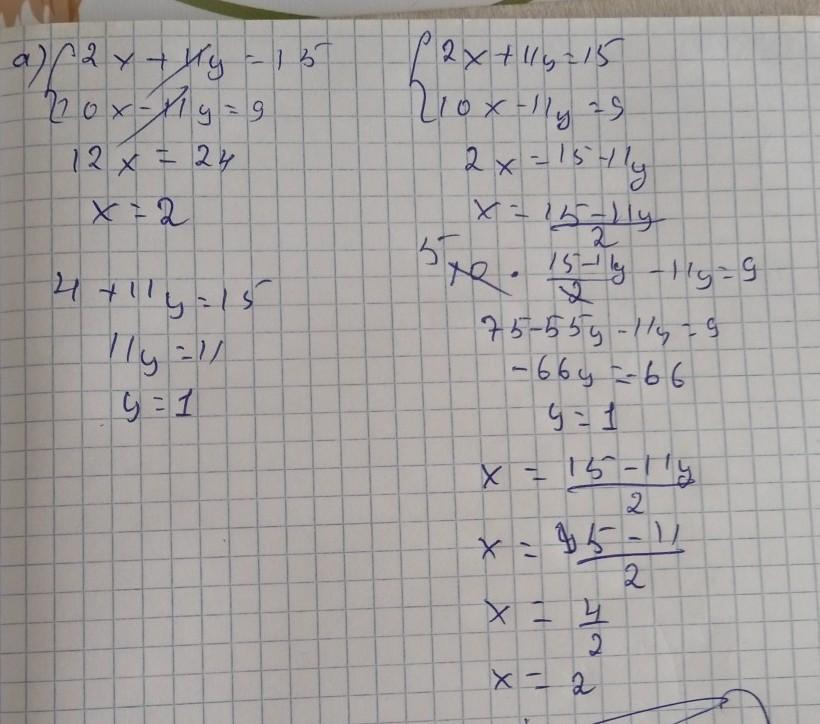 a) { 2x + 11y = 15
10x - 11y = 9
12x = 24
x = 2
4 + 11y = 15
11y = 11
y = 1
{ 2x + 11y = 15
10x - 11y = 9
2x = 15 - 11y
x = (15 - 11y)/2
5 10 · (15 - 11y)/2 - 11y = 9
75 - 55y - 11y = 9
-66y = -66
y = 1
x = (15 - 11y)/2
x = (15 - 11)/2
x = 4/2
x = 2